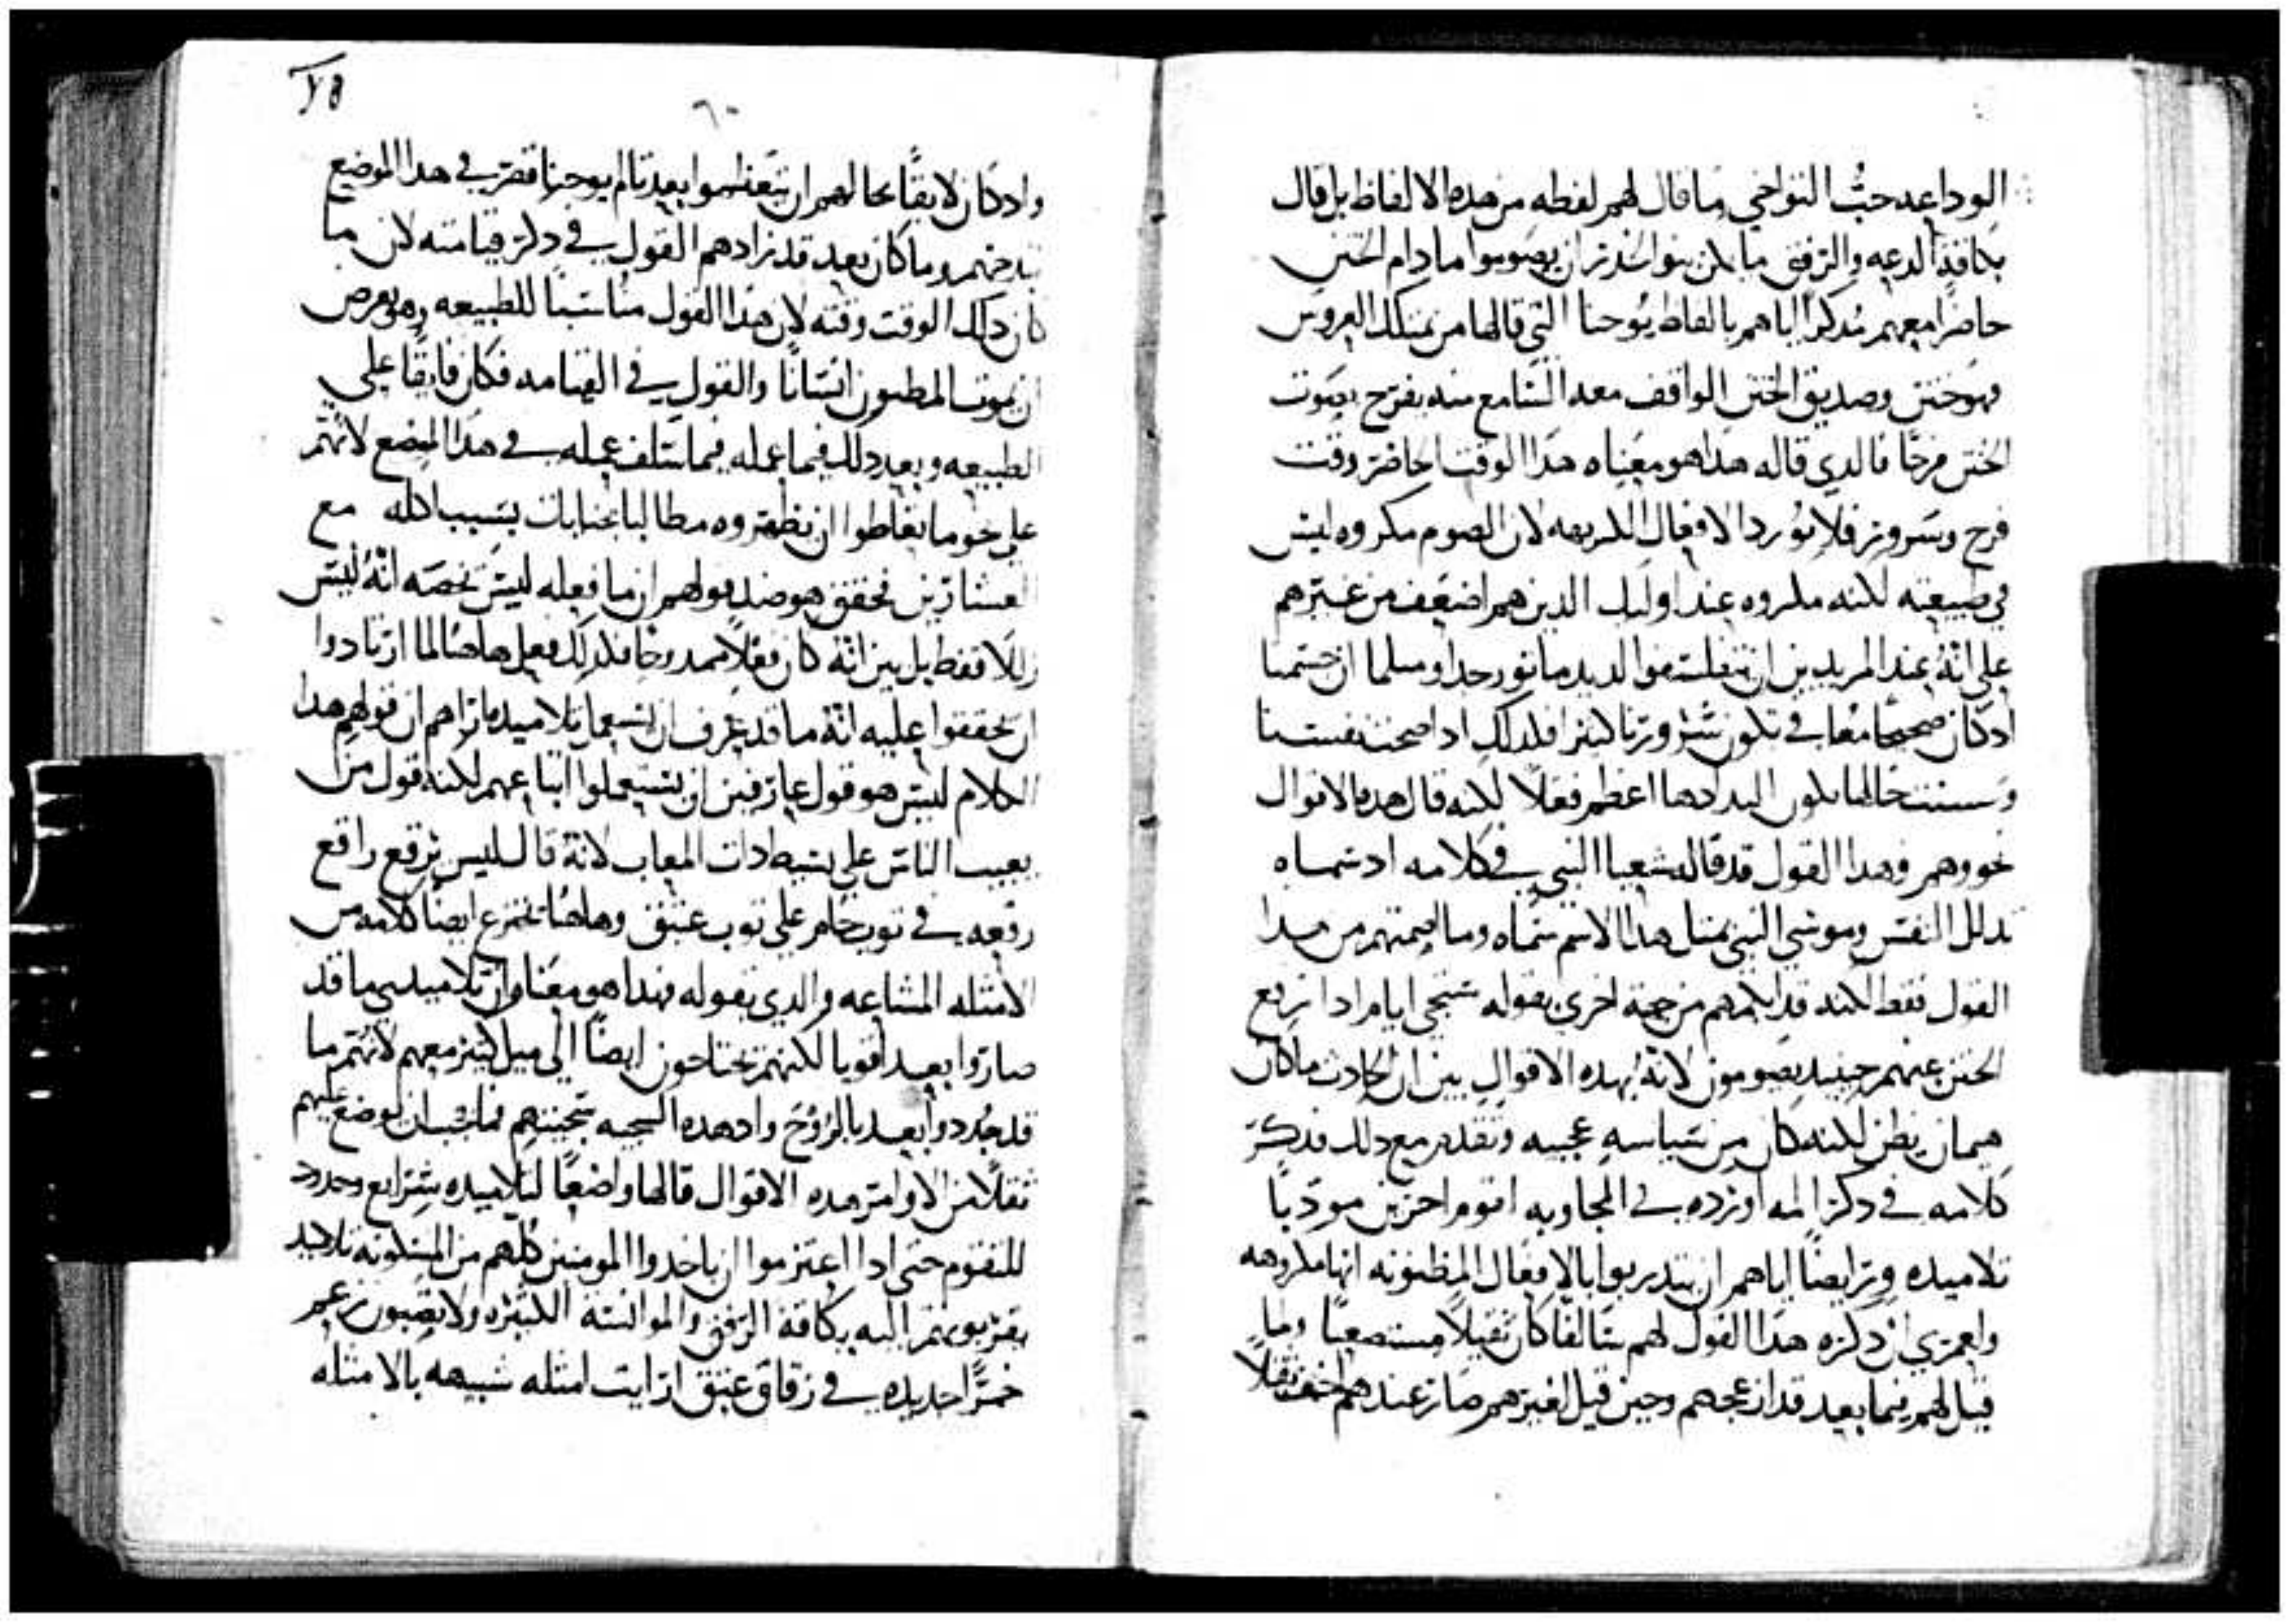 الوداعه حبُّ النواحي ما قال لهم لفظه من هده الالفاظ بل قال
بكافة الدعه والترفق ما يمكن بنو الخدر ان يصوموا ما دام الختن
حاضرًا معهم مُدكرًا اياهم بالفاظ يُوحنا التي قالها من يمتلك العروس
فهو ختن وصديق الختن الواقف معه السامع منه يفرح بصوت
الختن فرحًا فالدي قاله هدا هو معناه هدا الوقت الحاضر وقت
فرح وسرور فلا نُورد الافعال الكريهه لان الصوم مكروه ليس
في طبيعته لكنه مكروه عند اوليك الدين هم اضعف من غيرهم
علي انهُ عند المريدين ان يتفلسفوا لديد ما نور جدا ومتلما ان جسمنا
ادكان صحيحًا معافي تكون سُرورنا كتيرا فلدلك ادا صحت نفسنا
وحسنت حالها يكون التدادها اعظم فعلاً لكنه قال هده الاقوال
نحووهم وهدا القول قد قاله شعيا النبي في كلامه ادسماه
تدلل النفس وموسي النبي بمتل هدا الاسم سماه وما اصمتهم من هدا
القول فقط لكنه قد ابكمهم من جهة اخري بقوله ستجي ايام ادا ترفع
الختن عنهم حينيد يصومون لانهُ بهده الاقوال بين ان الحادث ما كان
هيمان بطن لكنه كان من سياسه عجيبه وتقدم مع دلك فدكر
كلامه في دكر المه اورده في المجاوبه لقوم اخرين مودبًا
تلاميده وترايضًا اياهم ان يتدربوا بالافعال المظنونه انها مكروهه
ولعمري ان دكره هدا القول لهم سالفًا كان تقيلاً مستصعبًا وما
قيل لهم فيما بعد قد ازعجهم وحين قيل لغيرهم صار عندهم اخف تقلاً
٦٠
واد كان لايقًا بحالهم ان يتعظموا بعد تالم يوحنا قصر في هدا الموضع
بدخهم وما كان بعد قد زادهم القول في دكر قيامته لان ما
كان دلك الوقت وقته لان هدا القول مناسبًا للطبيعه وهو يعرض
ان يموت المظنون انسانًا والقول في القيامه فكان فايقًا علي
الطبيعه وبعد دلك فيما عمله فيما سلف عمله في هدا الموضع لانهم
علي نحو ما تعاطوا ان يظهروه مطالبا بجنايات بسبب اكله مع
العشارين فحقق هو ضد قولهم ان ما فعله ليس يخصه انهُ ليس
زللاً فقط بل بين انهُ كان فعلاً ممدوحًا فلدلك فعل هاهنا لما ارتادوا
ان يحققوا عليه انهُ ما قد عرف ان يستعمل تلاميده اراهم ان قولهم هدا
الكلام ليس هو قول عارفين ان يستعملوا اتباعهم لكنه قول من
يعيب الناس علي بسيط دات المعاب لانهُ قال ليس يُرقع راقع
رقعه في توب خام علي توب عتيق وهاهنا يخترع ايضًا كلامه من
الامتله المشاعه والدي يقوله فهدا هو معناه ان تلاميدي ما قد
صاروا بعد اقويا لكنهم يحتاجون ايضًا الي ميل كتير معهم لانهم ما
قد جُددوا بعد بالرُوح واد هده السجيه سجيتهم فما يجب ان يوضع عليهم
تقلاً من الاوامر هده الاقوال قالها واضعًا لتلاميده شرايع وحدود
للتقوم حتي ادا اعتزموا ان ياخدوا المومنين كلهم من المسكونه تلاميد
يقربونهم اليه بكافة الرفق والموانسة الكتيره ولا يصبون زعم
خمرًا جديده في زقاق عتيق ارايت امتله شبيهه بالامتله